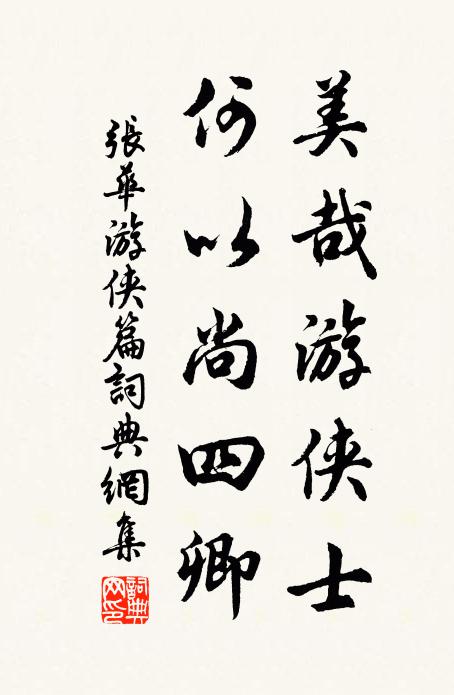 美哉游侠士
何以尚四卿
張華游侠篇詞典網集
詞典網印